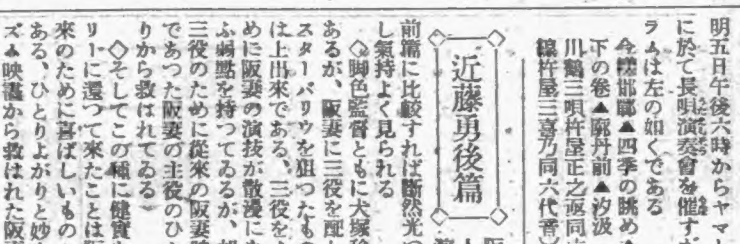 明五日午後六時からヤマ
に於て長唄演奏會を催す
ラムは左の如くである
今様邯鄲▲四季の眺め▲
下の卷▲廓丹前▲汐汲
川鶴三唄杵屋正之
杵屋三喜乃同六代
近藤勇後篇
前篇に比較すれば斷然光つ
し氣持よく見られる
◇脚色監督ともに犬塚
あるが、阪妻に三役を配
スターバリウを狙つたもの
は上出來である、三役を
めに阪妻の演技が散漫に
ふ弱點を持つてゐるが、
三役のために從來の阪妻
であつた阪妻の主役のひ
りから救はれてゐる
◇そしてこの種に健實
リーに還つて來たことは
來のために喜ばしいもの
ある、ひとりよがりと妙
ズム映畫から救はれた阪